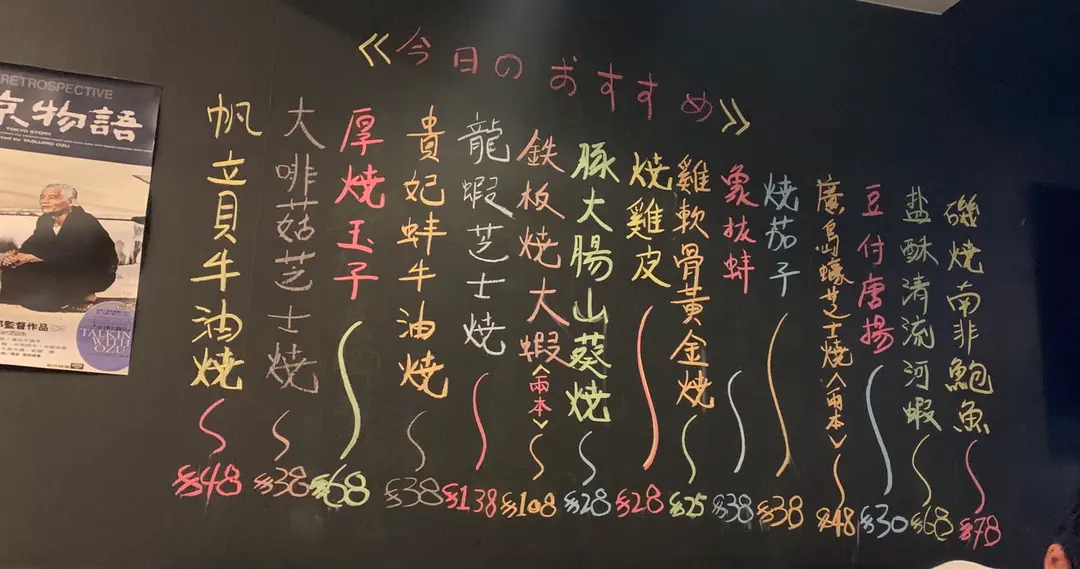 RETROSPECTIVE
京物語
TOKYO STORY
TALKING
WITH
OZU
≪今日のおすすめ≫
帆立貝牛油焼 $48
大啡菇芝士焼 $38
厚焼玉子 $68
貴妃蚌牛油焼 $38
龍蝦芝士焼 $138
鉄板焼大蝦<兩本> $108
豚大腸山葵焼 $28
焼雞皮 $28
雞軟骨黄金焼 $25
象拔蚌 $38
焼茄子 $38
廣島蠔芝士燒<兩本> $48
豆付唐揚 $30
盐酥清流河蝦 $68
磯焼南非鮑魚 $78